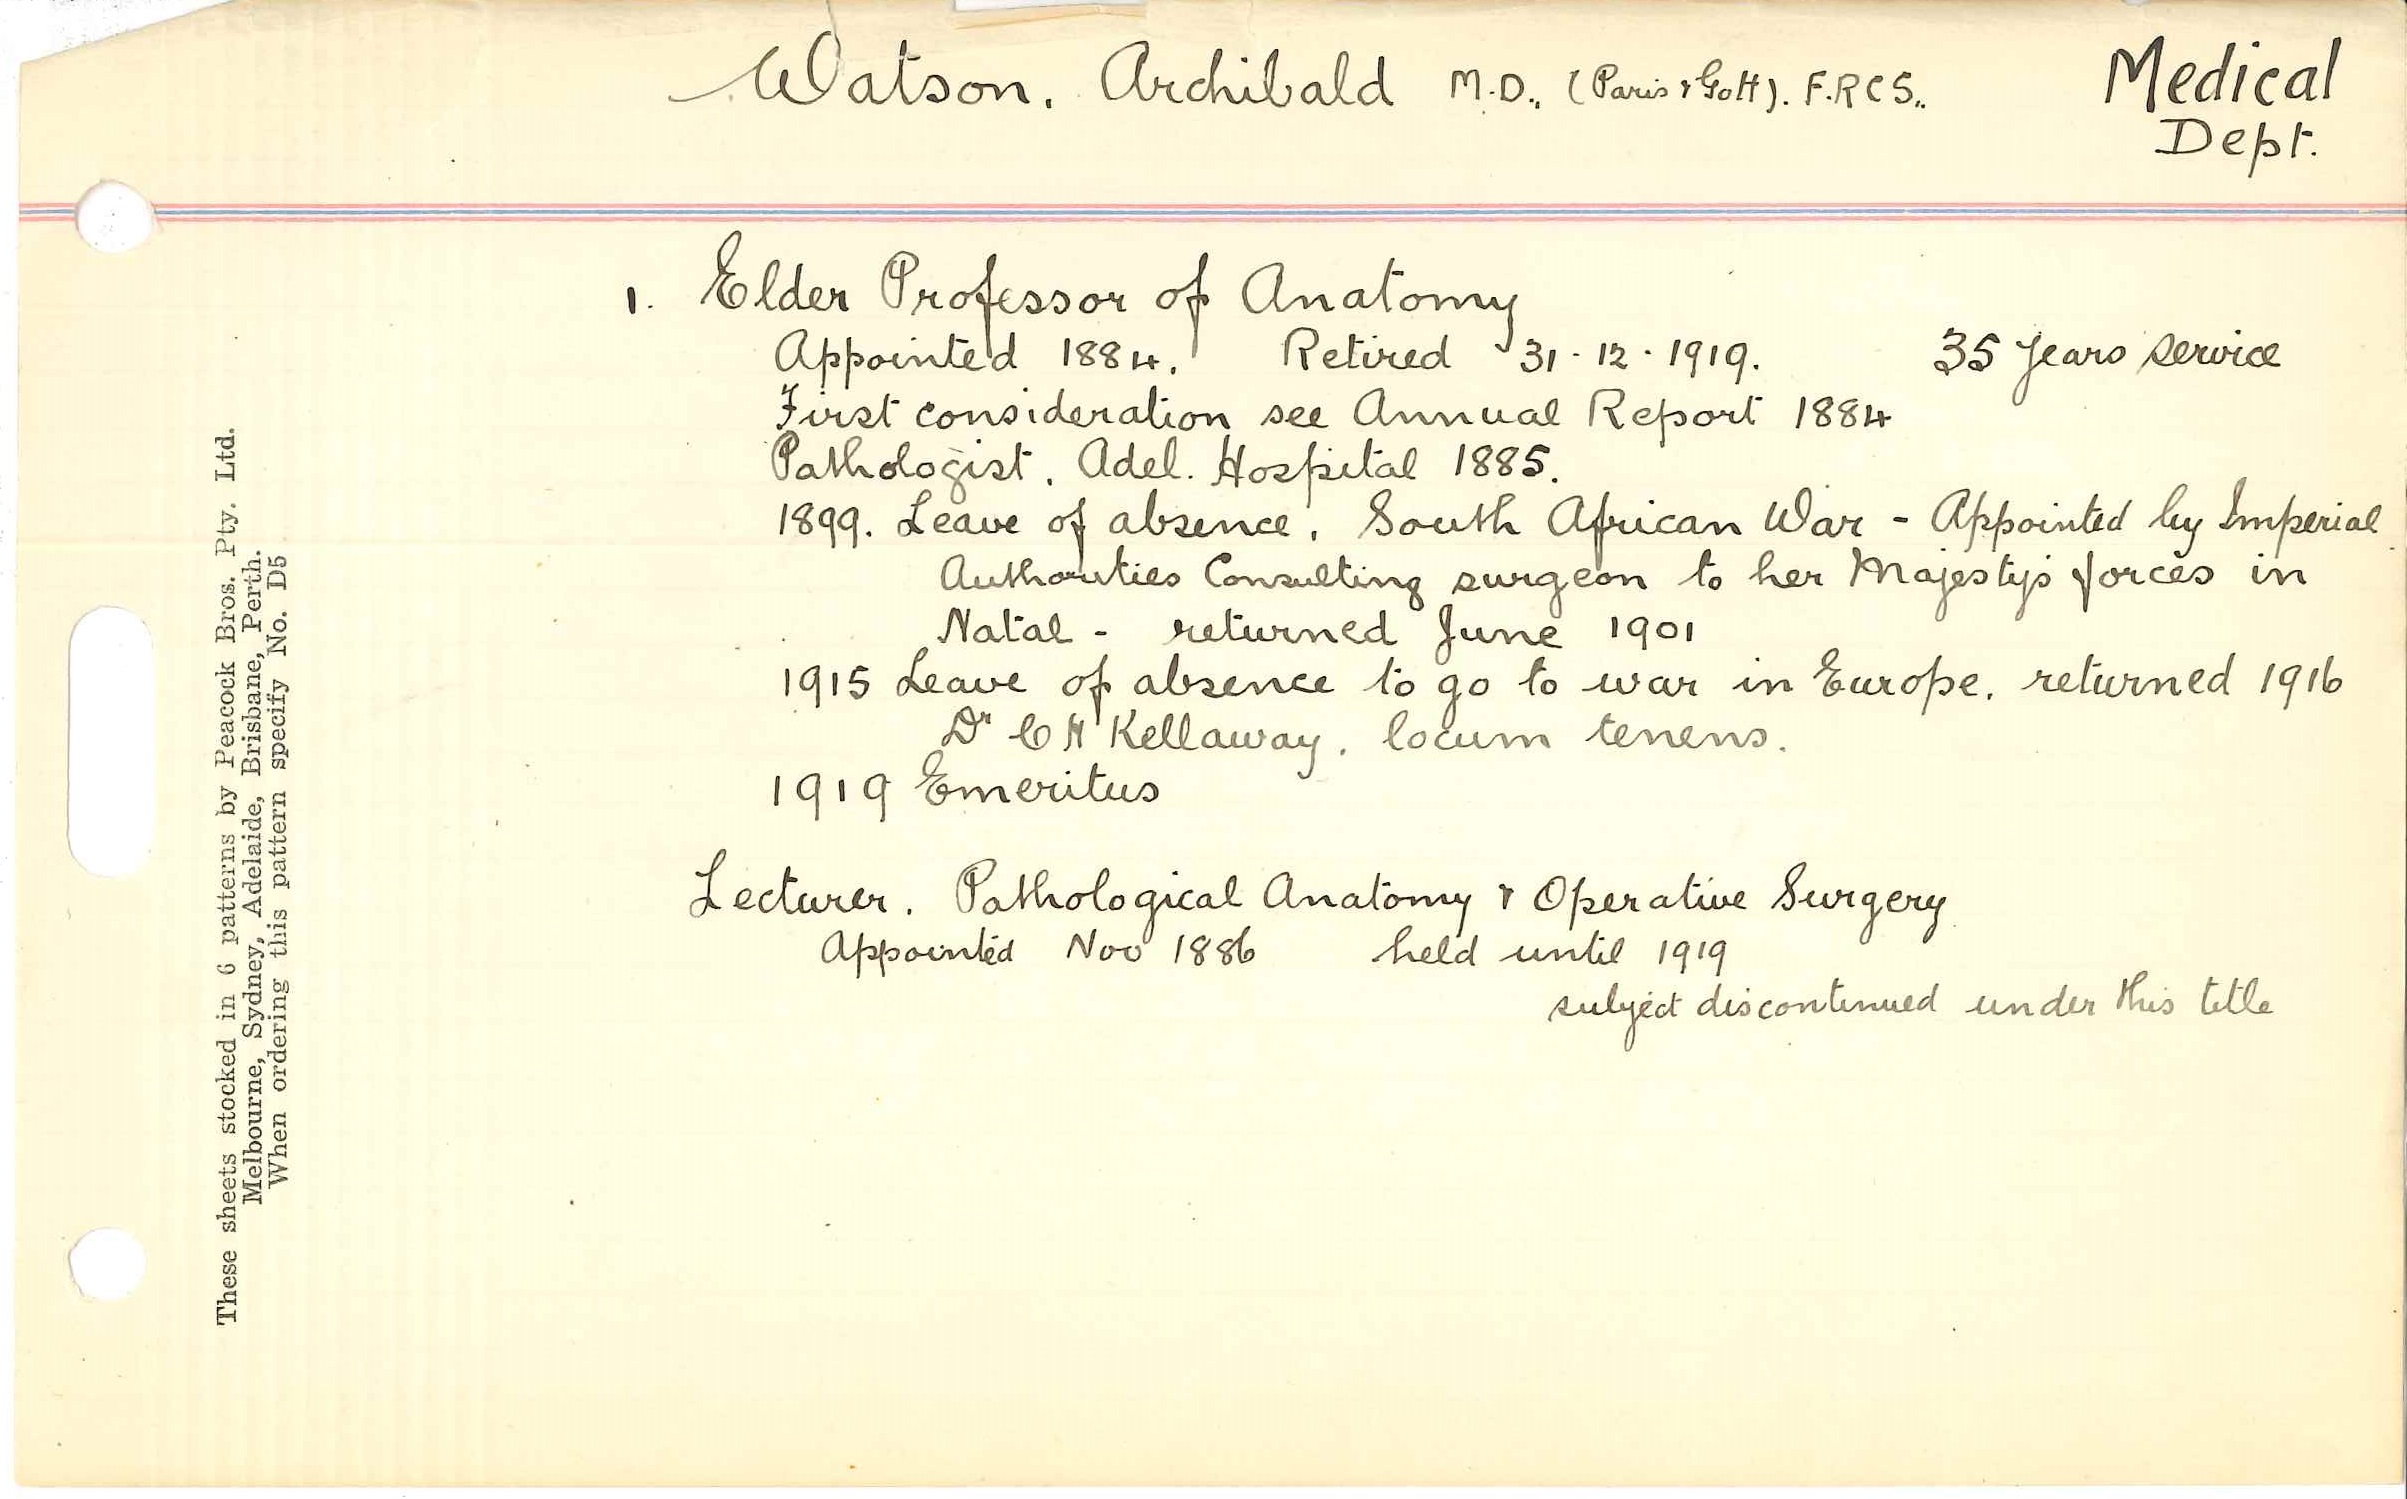 Watson. Archibald M.D., (Paris & Gott). F.R.C.S.,
Medical
Dept.
1. Elder Professor of Anatomy
Appointed 1884. Retired 31-12-1919. 35 years service
First consideration see Annual Report 1884
Pathologist. Adel. Hospital 1885.
1899. Leave of absence. South African War - Appointed by Imperial
Authorities Consulting surgeon to her Majesty's forces in
Natal - returned June 1901
1915 Leave of absence to go to war in Europe. returned 1916
Dr C H Kellaway. locum tenens.
1919 Emeritus
Lecturer. Pathological Anatomy & Operative Surgery
Appointed Nov 1886 held until 1919
subject discontinued under this title
These sheets stocked in 6 patterns by Peacock Bros. Pty. Ltd.
Melbourne, Sydney, Adelaide, Brisbane, Perth.
When ordering this pattern specify No. D5